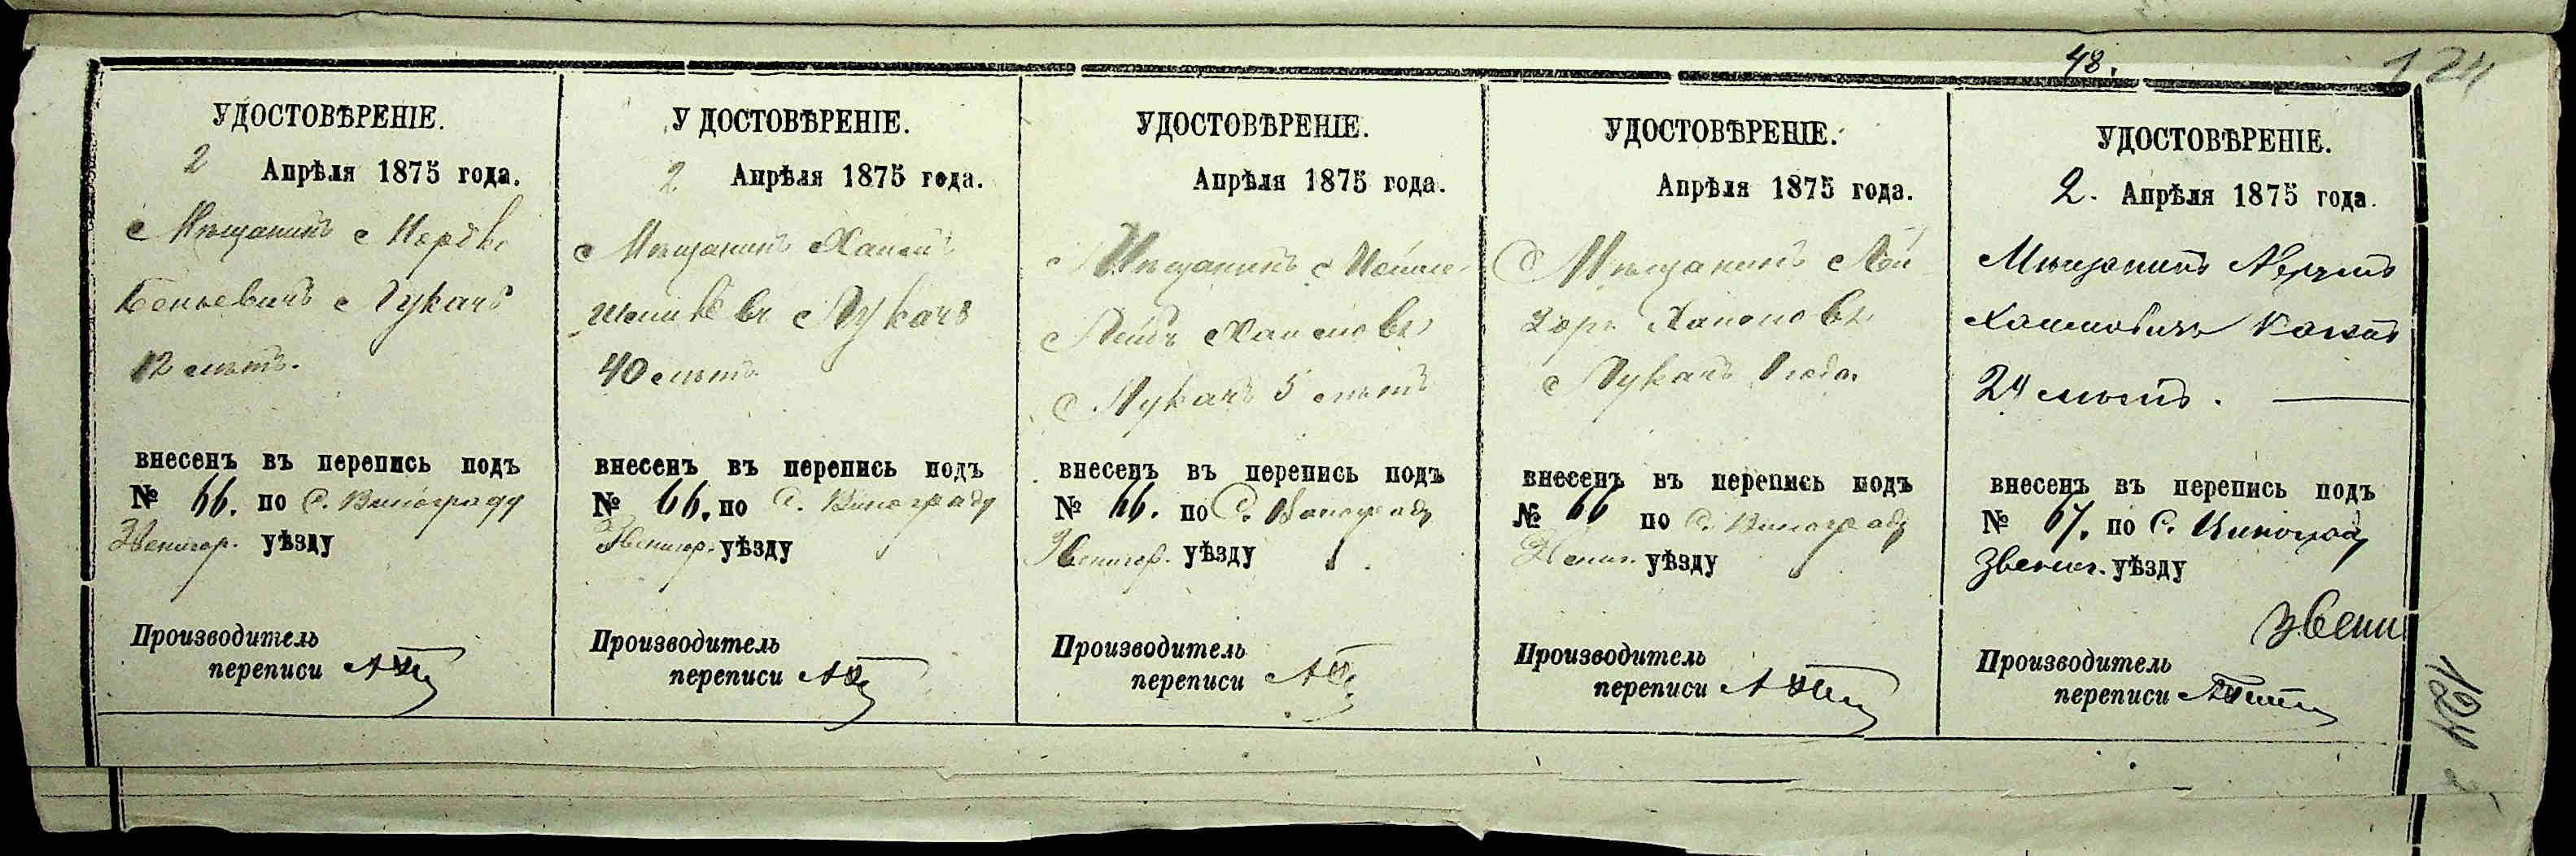 48.
124
УДОСТОВѢРЕНІЕ.
2 Апрѣля 1875 года.
Мѣщанинъ
Беньевичъ Лукачъ
12 лѣтъ.
внесенъ въ перепись подъ
№ 66. по С. Винограду
Звенигор. уѣзду
Производитель
переписи
УДОСТОВѢРЕНІЕ.
2 Апрѣля 1875 года.
Мѣщанинъ
Лукачъ
40 лѣтъ
внесенъ въ перепись подъ
№ 66. по С. Винограду
Звенигор. уѣзду
Производитель
переписи
УДОСТОВѢРЕНІЕ.
Апрѣля 1875 года.
Мѣщанинъ
Лукачъ 5 лѣтъ
внесенъ въ перепись подъ
№ 66. по С. Винограду
Звенигор. уѣзду
Производитель
переписи
УДОСТОВѢРЕНІЕ.
Апрѣля 1875 года.
Мѣщанинъ
Лукачъ
внесенъ въ перепись подъ
№ 66 по С. Винограду
Звениг. уѣзду
Производитель
переписи
УДОСТОВѢРЕНІЕ.
2. Апрѣля 1875 года.
Мѣщанинъ
24 лѣтъ.
внесенъ въ перепись подъ
№ 67. по С. Винограду
Звениг. уѣзду
Звени
Производитель
переписи
124